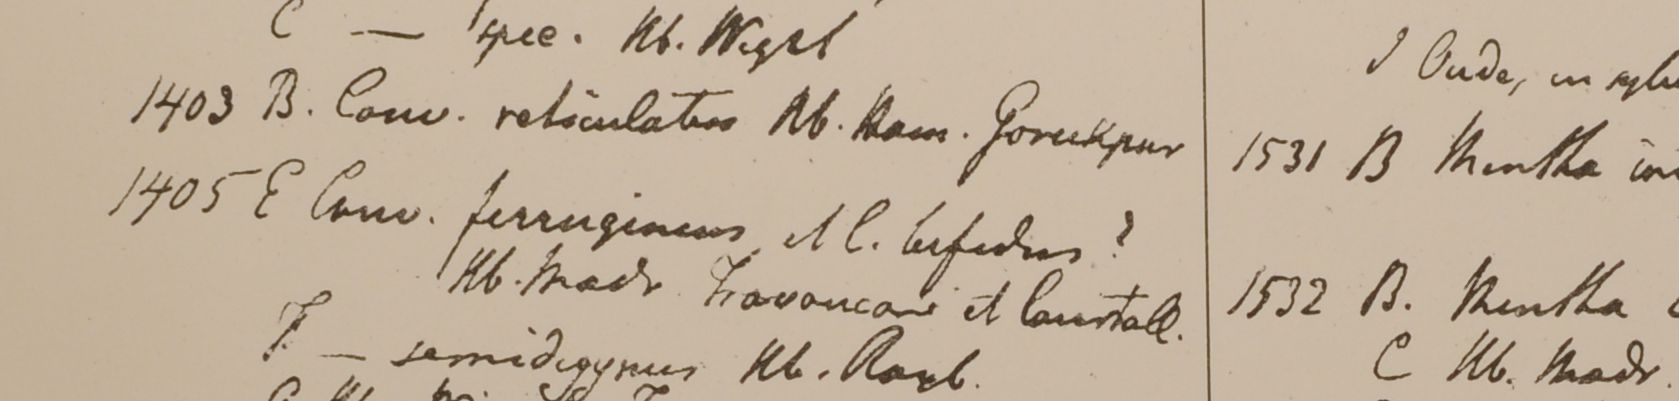 C — spec. Hb. Wight
1403 B. Conv. reticulatus Hb. Ham. Gorukpur
1405 E Conv. ferrugineus et C. bifidus?
Hb. Madr Travancore et Courtall.
F — semidigynus Hb. Roxb.
I Oude, in
1531 B Mentha
1532 B. Mentha
C Hb. Madr.